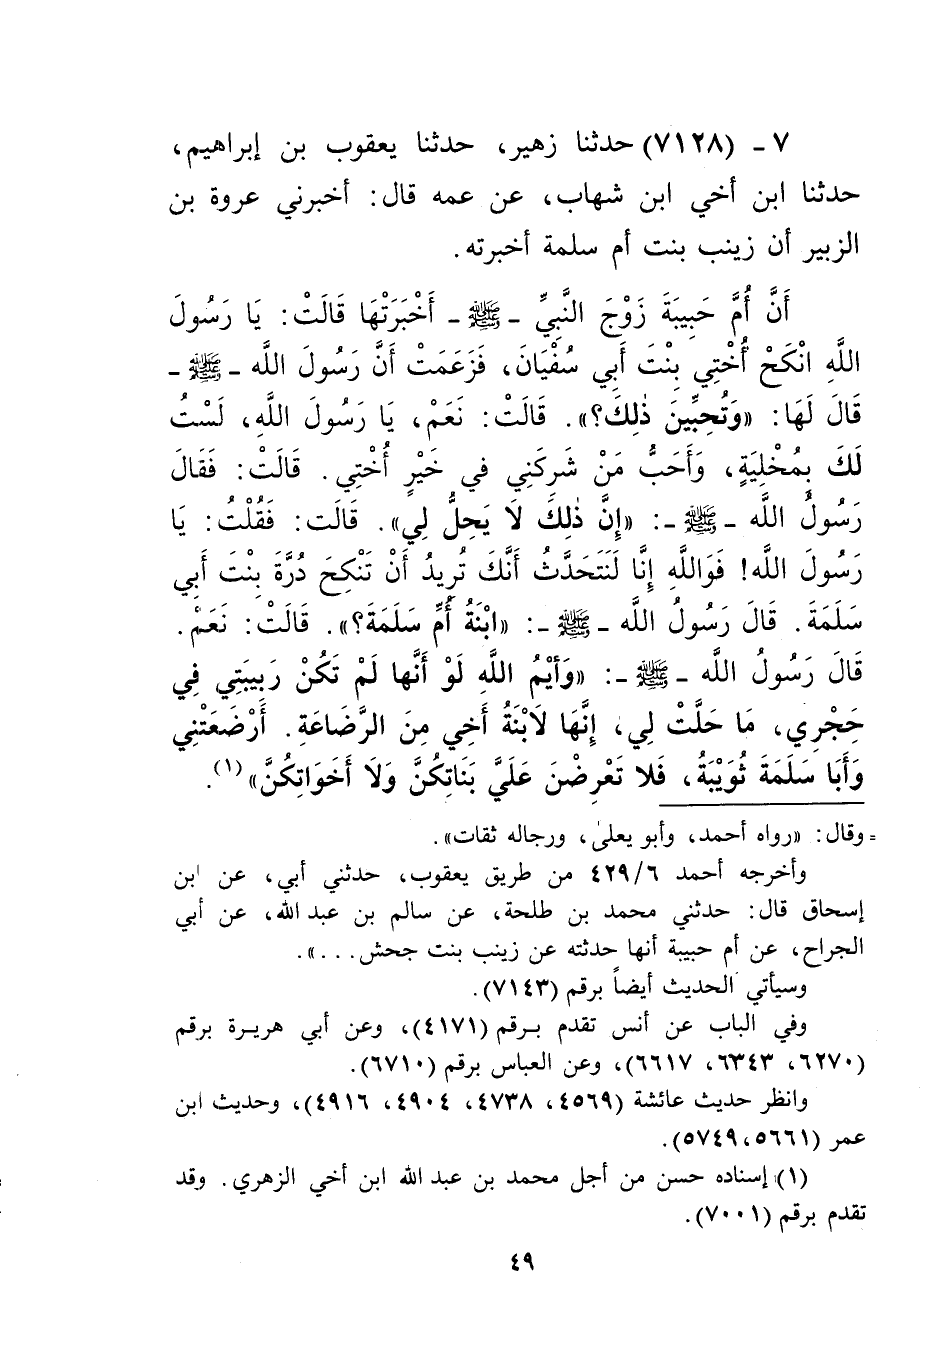 ٧ - (٧١٢٨) حدثنا زهير، حدثنا يعقوب بن إبراهيم،
حدثنا ابن أخي ابن شهاب، عن عمه قال: أخبرني عروة بن
الزبير أن زينب بنت أم سلمة أخبرته.
أَنَّ أُمَّ حَبِيبَةَ زَوْجَ النَّبِيِّ - ﷺ - أَخْبَرَتْهَا قَالَتْ: يَا رَسُولَ
اللَّهِ انْكَحْ أُخْتِي بِنْتَ أَبِي سُفْيَانَ، فَزَعَمَتْ أَنَّ رَسُولَ الله - ﷺ -
قَالَ لَهَا: «وَتُحِبِّينَ ذٰلِكَ؟». قَالَتْ: نَعَمْ، يَا رَسُولَ اللَّهِ، لَسْتُ
لَكَ بِمُخْلِيَةٍ، وَأَحَبُّ مَنْ شَرِكَنِي فِي خَيْرٍ أُخْتِي. قَالَتْ: فَقَالَ
رَسُولُ اللَّه - ﷺ -: «إِنَّ ذٰلِكَ لَا يَحِلُّ لِي». قَالَت: فَقُلْتُ: يَا
رَسُولَ اللَّه! فَوَاللَّهِ إِنَّا لَنَتَحَدَّثُ أَنَّكَ تُرِيدُ أَنْ تَنْكِحَ دُرَّةَ بِنْتَ أَبِي
سَلَمَةَ. قَالَ رَسُولُ اللَّه - ﷺ -: «ابْنَةُ أُمِّ سَلَمَةَ؟». قَالَتْ: نَعَمْ.
قَالَ رَسُولُ اللَّه - ﷺ -: «وَأَيْمُ اللَّهِ لَوْ أَنَّها لَمْ تَكُنْ رَبِيبَتِي فِي
حَجْرِي، مَا حَلَّتْ لِي، إِنَّهَا لَابْنَةُ أَخِي مِنَ الرَّضَاعَةِ. أَرْضَعَتْنِي
وَأَبَا سَلَمَةَ ثُوَيْبَةُ، فَلا تَعْرِضْنَ عَلَيَّ بَنَاتِكُنَّ وَلَا أَخَوَاتِكُنَّ»(١).
= وقال: «رواه أحمد، وأبو يعلىٰ، ورجاله ثقات».
وأخرجه أحمد ٤٢٩/٦ من طريق يعقوب، حدثني أبي، عن ابن
إسحاق قال: حدثني محمد بن طلحة، عن سالم بن عبد الله، عن أبي
الجراح، عن أم حبيبة أنها حدثته عن زينب بنت جحش...».
وسيأتي الحديث أيضاً برقم (٧١٤٣).
وفي الباب عن أنس تقدم برقم (٤١٧١)، وعن أبي هريرة برقم
(٦٢٧٠، ٦٣٤٣، ٦٦١٧)، وعن العباس برقم (٦٧١٠).
وانظر حديث عائشة (٤٥٦٩، ٤٧٣٨، ٤٩٠٤، ٤٩١٦)، وحديث ابن
عمر (٥٦٦١، ٥٧٤٩).
(١) إسناده حسن من أجل محمد بن عبد الله ابن أخي الزهري. وقد
تقدم برقم (٧٠٠١).
٤٩